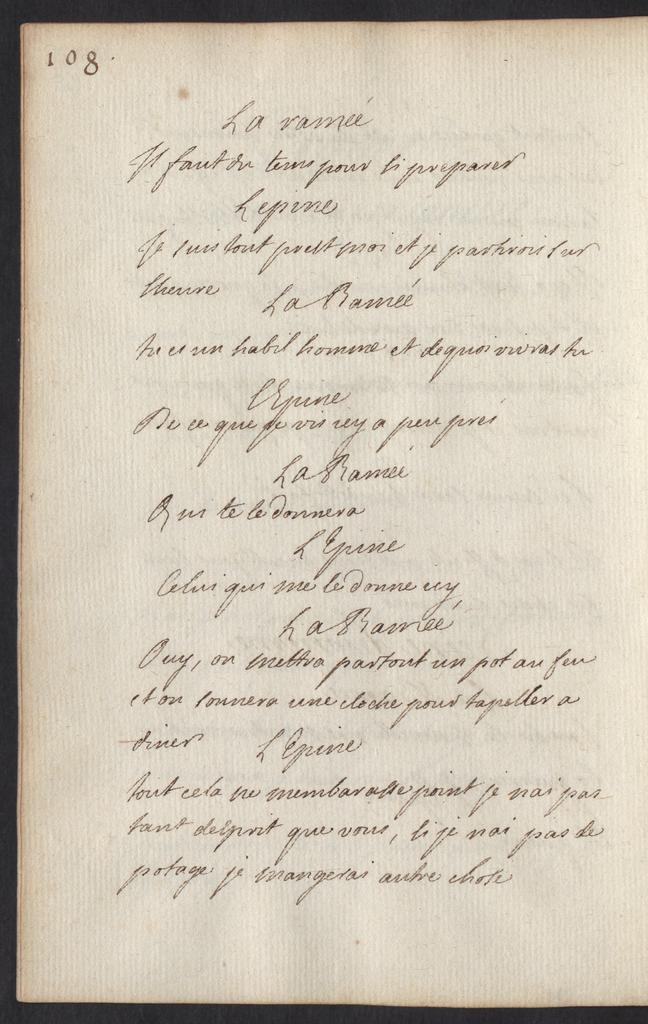 108.
La ramée
Il faut du tems pour si preparer
Lepine
Je suis tout prest moi et je partirois sur
lheure
La Ramée
tu es un habil homme et dequoi vivras tu
l'Epine
De ce que je vis icy a peu prés
La Ramée
Qui te le donnera
L'Epine
Celui qui me le donne icy
La Ramée
Ouy, on mettra partout un pot au feu
et on sonnera une cloche pour tapeller a
diner
L'Epine
tout cela ne membarasse point je nai pas
tant desprit que vous, si je nai pas de
potage je mangerai autre chose